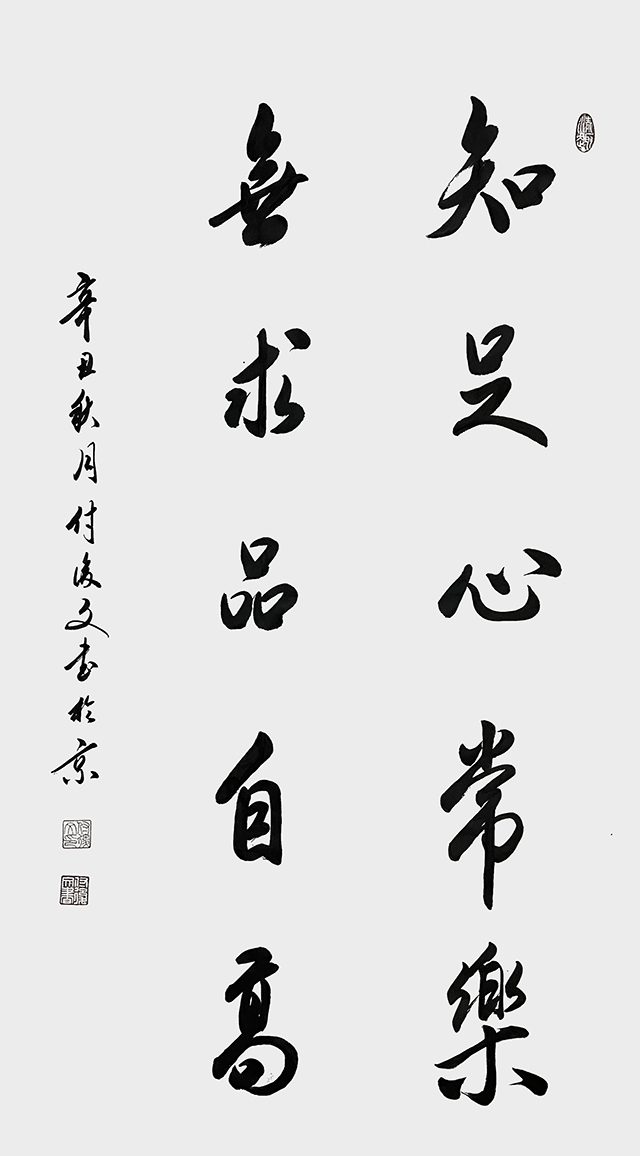 知足心常樂
無求品自高
辛丑秋月付俊文书於京